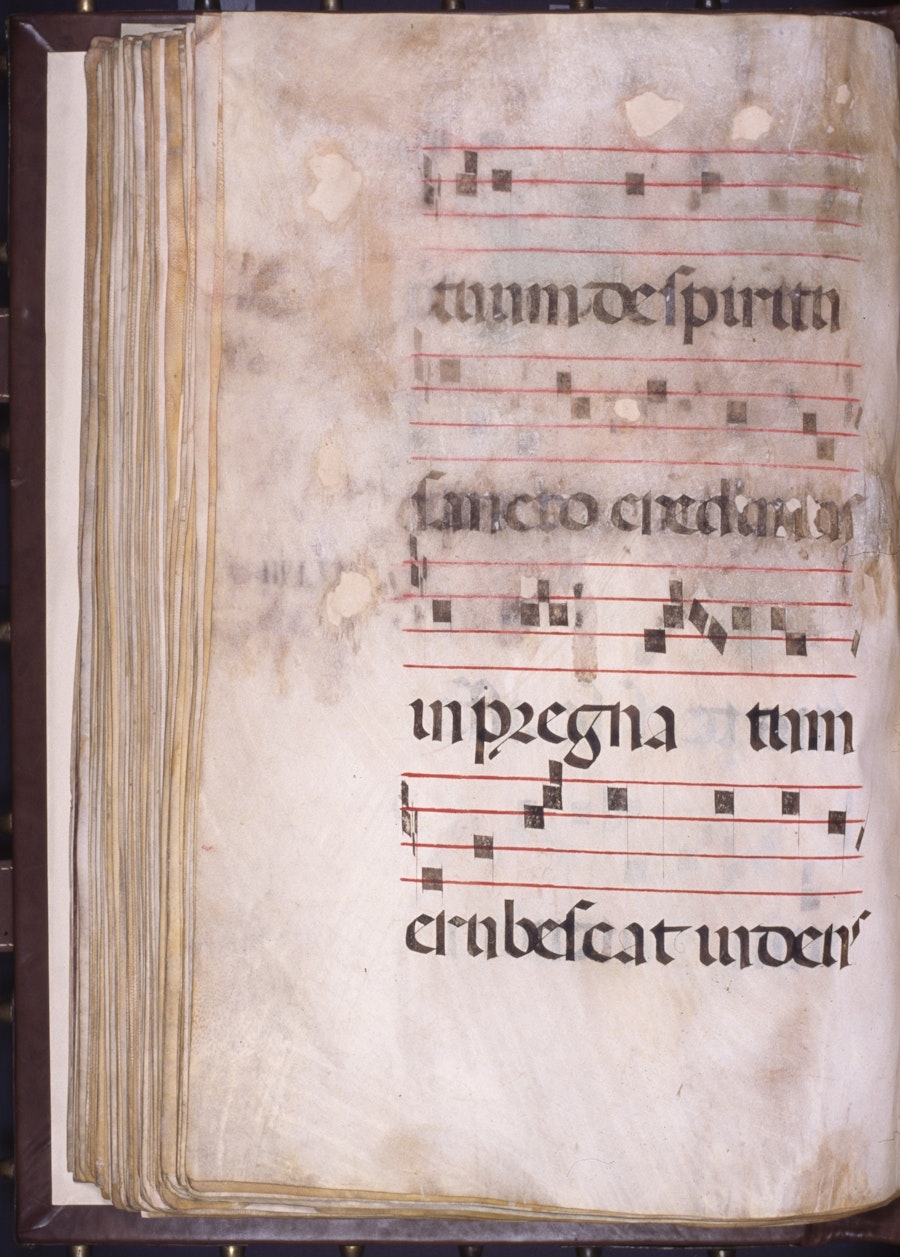 tuum de spiritu
sancto credimus
inpregna tum
erubescat iudeus